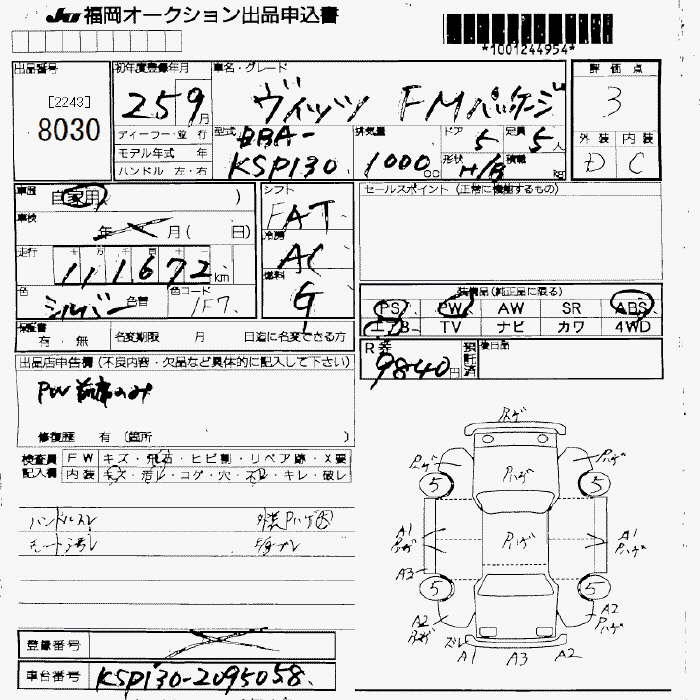 JU 福岡オークション出品申込書
*1001244954*
出品番号
[2243]
8030
初年度登録年月
25 9月
車名・グレード
ヴィッツ FMパッケージ
評価点
3
外装 内装
D C
ディーラー・並行
モデル年式 年
ハンドル 左・右
型式
DBA-
KSP130
排気量
1000cc
ドア 5
定員 5人
形状 H/B
積載 kg
車歴 自家用( )
車検 年 月( 日)
走行 十 万 千 百 十 一
111672km
色 シルバー 色替
色コード 1F7
シフト
FAT
冷房
AC
燃料
G
セールスポイント(正常に機能するもの)
装備品(純正品に限る)
PS PW AW SR ABS
エアB TV ナビ カワ 4WD
保証書 有・無
名変期限 月 日迄に名変できる方
R券
9840円
預託済
後日品
出品店申告欄(不良内容・欠品など具体的に記入して下さい)
PW 前席のみ
修復歴 有〔箇所 〕
検査員記入欄
FW キズ・飛石・ヒビ割・リペア跡・X要
内装 キズ・汚レ・コゲ・穴・スレ・キレ・破レ
ハンドルスレ
外装Pハゲ大
シート汚レ
Pハゲ
Pハゲ
Pハゲ
Pハゲ
5 5
A1 Pハゲ
A1 Pハゲ
Pハゲ
A3
5 5
A2
A2 Pハゲ
ズレ
A1 A3 A2
登録番号
車台番号 KSP130-2095058